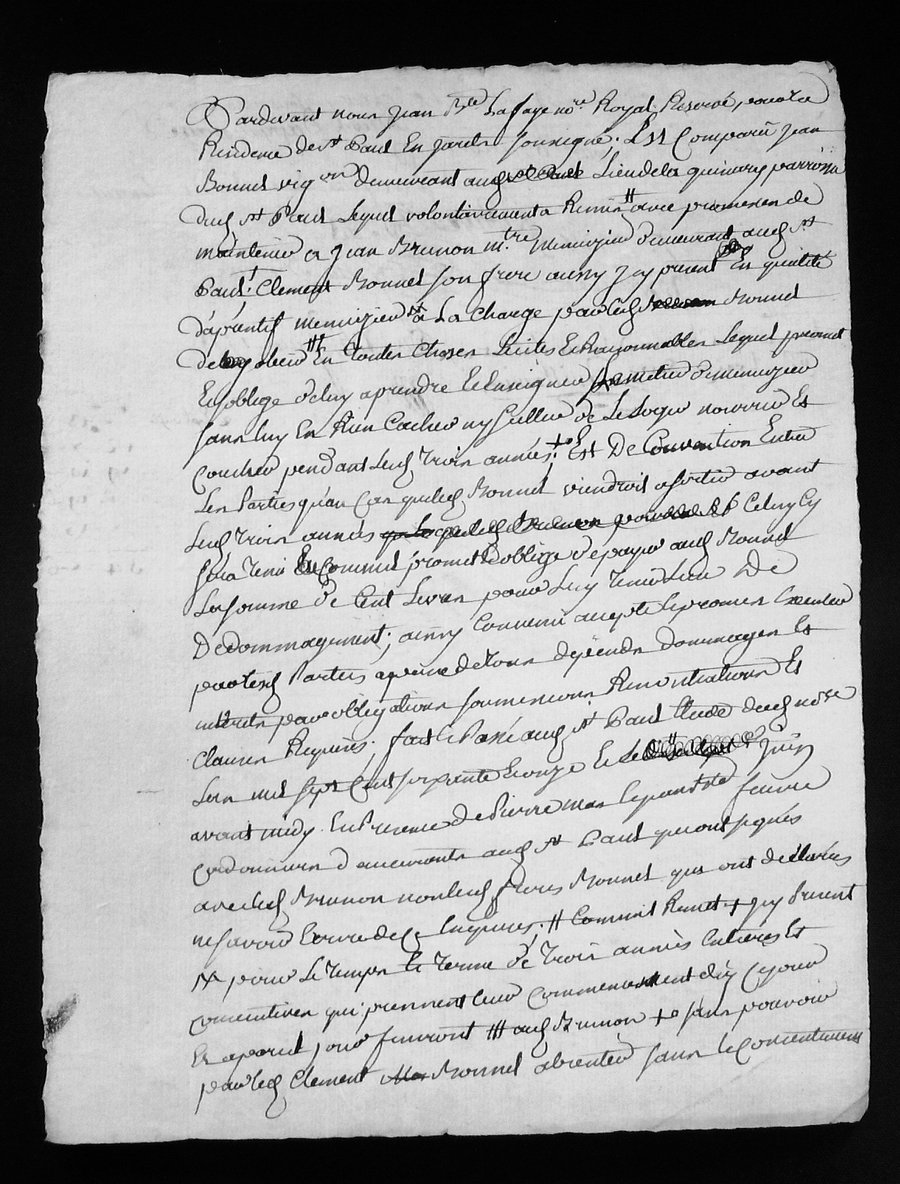 Pardevant nous Jean Bte Lafaye nore Royal Reservé pour la
Residence de st Paul En Jarest soussigné, Est Comparû Jean
Bonnet vigron demeurant audt st Paul Lieu de la parroisse
dudt st Paul Lequel volontairement a Remis # avec promesse de
maintenir a Jean Brunon mtre Menuizier demeurant audt st
Paul, Clement Bonnet son frere aussy Icy present En qualité
d'aprentif menuizier a La Charge par ledt Bonnet
de luy obeir ## En toutes Choses Licites Et Raisonnables Lequel promet
Et s'oblige de luy aprendre Et Enseigner le metier de menuizier
sans luy En Rien Cacher ny Celler de Le Loger nourrir Et
Coucher pendant lesd trois années, Est De Convention Entre
Les Parties qu'au Cas que ledt Bonnet viendroit a sortir avant
lesd trois années Celuy Cy
sera tenû Comme il promet Et oblige de payer audt Brunon
La somme de Cent Livres pour Luy tenir Lieu De
Dedommagement; ainsy Convenû accepté Et promis Executer
par lesd Parties a peine de tous depends dommages Et
interets par obligations soumissions Renonciations Et
Clauses Requises; fait Et Passé audt st Paul Etude dudt nore
L'an mil sept Cent soixante Et onze Et Le Juin
avant midy. En Presence de Pierre
Cordonniers demeurants audt st Paul qui ont signés
avec ledt Brunon non lesd freres Bonnet qui ont declarés
ne savoir Ecrire de Ce Enquis; # Comme il Remet + icy present
pour Le tems Et terme de trois années Entieres Et
consecutives qui prennent leur Commencement dez Ce jour
Et a pareil jour finiront ### audt Brunon + sans pouvoir
par ledt Clement Bonnet absenter sans le Consentement